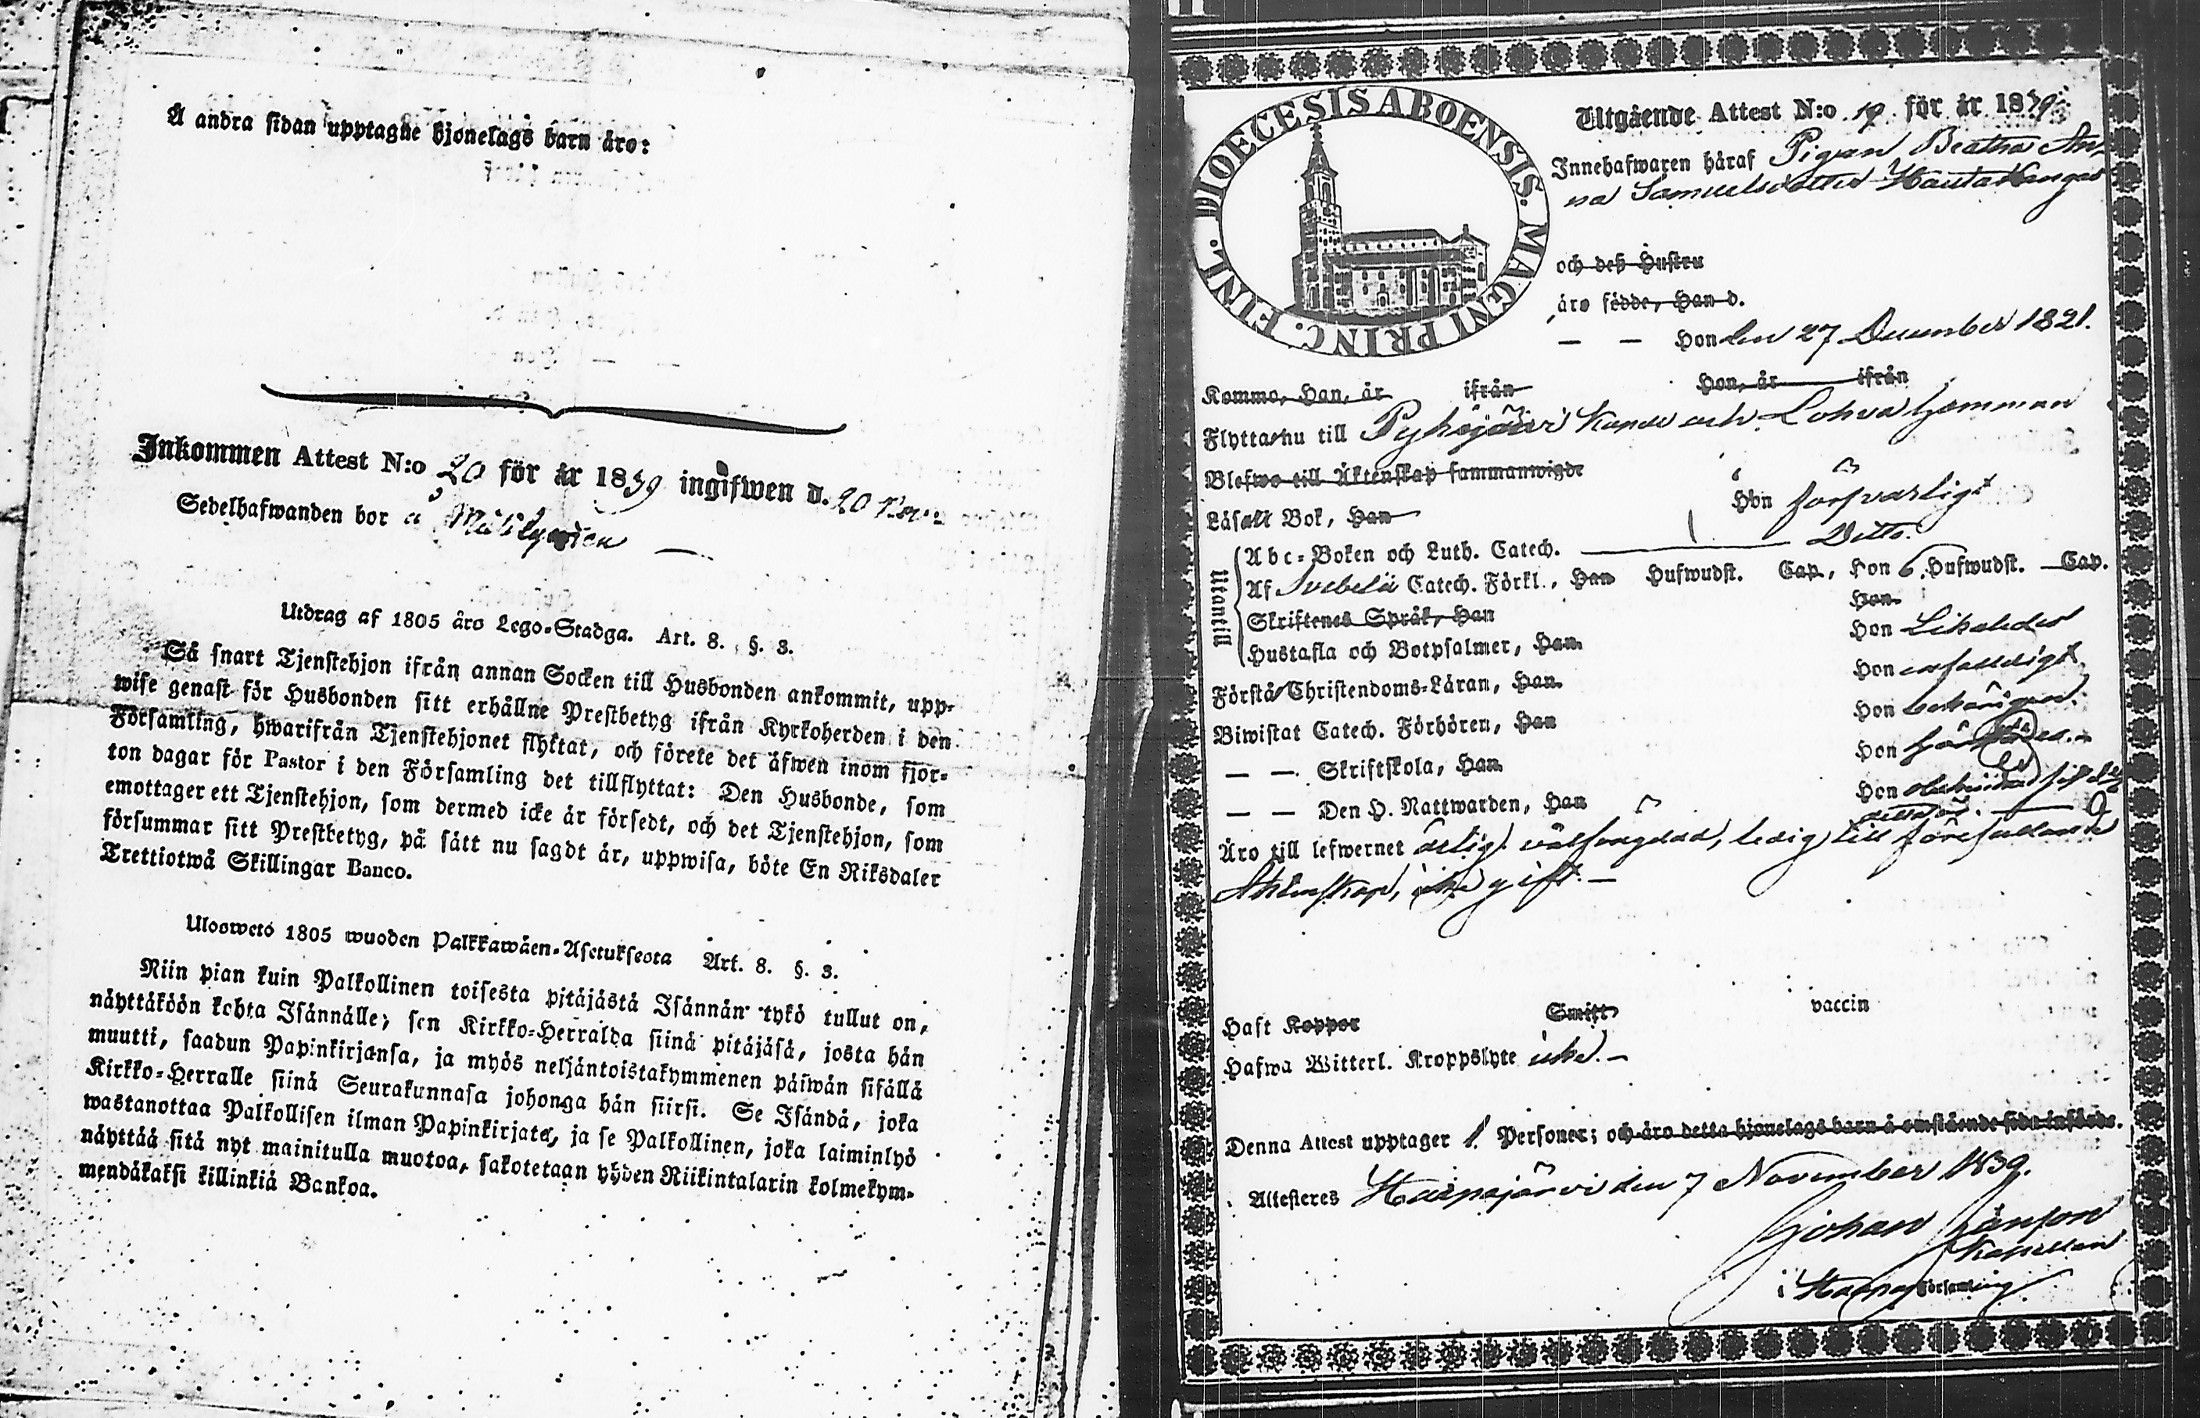 Å andra sidan upptagne hjonelags barn äro:
Inkommen Attest N:o 20 för år 1839 ingifwen d. 20 Nov.
Sedelhafwanden bor å
Utdrag af 1805 års Lego-Stadga. Art. 8. §. 3.
Så snart Tjenstehjon ifrån annan Socken till Husbonden ankommit, upp-
wise genast för Husbonden sitt erhållne Prestbetyg ifrån Kyrkoherden i den
Församling, hwarifrån Tjenstehjonet flyktat, och förete det äfwen inom fjor-
ton dagar för Pastor i den Församling det tillflyttat: Den Husbonde, som
emottager ett Tjenstehjon, som dermed icke är försedt, och det Tjenstehjon, som
försummar sitt Prestbetyg, på sätt nu sagdt är, uppwisa, böte En Riksdaler
Trettiotwå Skillingar Banco.
Uloswetö 1805 wuoden Palkkawäen-Asetuksesta Art. 8. §. 3.
Niin pian kuin Palkollinen toisesta pitäjästä Isännän tykö tullut on,
näyttäköön kohta Isännälle, sen Kirkko-Herralda siinä pitäjäsä, josta hän
muutti, saadun Papinkirjansa, ja myös neljäntoistakymmenen päiwän sisällä
Kirkko-Herralle siinä Seurakunnasa johonga hän siirsi. Se Isändä, joka
wastanottaa Palkollisen ilman Papinkirjata, ja se Palkollinen, joka laiminlyö
näyttää sitä nyt mainitulla muotoa, sakotetaan yhden Riikintalarin kolmekym-
mendäkaksi killinkiä Bankoa.
DIOECESIS ABOENSIS. MAGNI PRINC. FINL.
Utgående Attest N:o 19 för år 1839
Innehafwaren häraf Pigan Beatha An-
na Samuelsdotter Hautakangas
och deß Hustru
äro födde, Han d.
— — Hon den 27 December 1821.
Kommo, Han, år ifrån Hon, år ifrån
Flytta nu till Pyhäjärvi Kapell och Lohva hemman
Blefwo till Äktenskap sammanwigde
Läsa i Bok, Han Hon försvarligt
Utantill
Abc-Boken och Luth. Catech. Ditto.
Af Svebelii Catech. Förkl., Han Hufwudst. Cap., Hon 6 Hufwudst. Cap.
Skriftenes Språk, Han Hon
Hustafla och Botpsalmer, Han Hon Likaledes
Förstå Christendoms-Läran, Han Hon enfaldigt
Biwistat Catech. Förhören, Han Hon behörigen.
— — Skriftskola, Han Hon
— — Den H. Nattwarden, Han Hon
Äro till lefwernet ärlig, välfrägdad, ledig till förefallande
Äktenskap, icke gift.—
Haft Koppor Smitt vaccin
Hafwa Witterl. Kroppslyte icke.—
Denna Attest upptager 1 Personer; och äro detta hjonelags barn å omstående sida införde.
Attesteres Haapajärvi den 7 November 1839.
Johan Jänson
Kapellan
i Haapaj församling